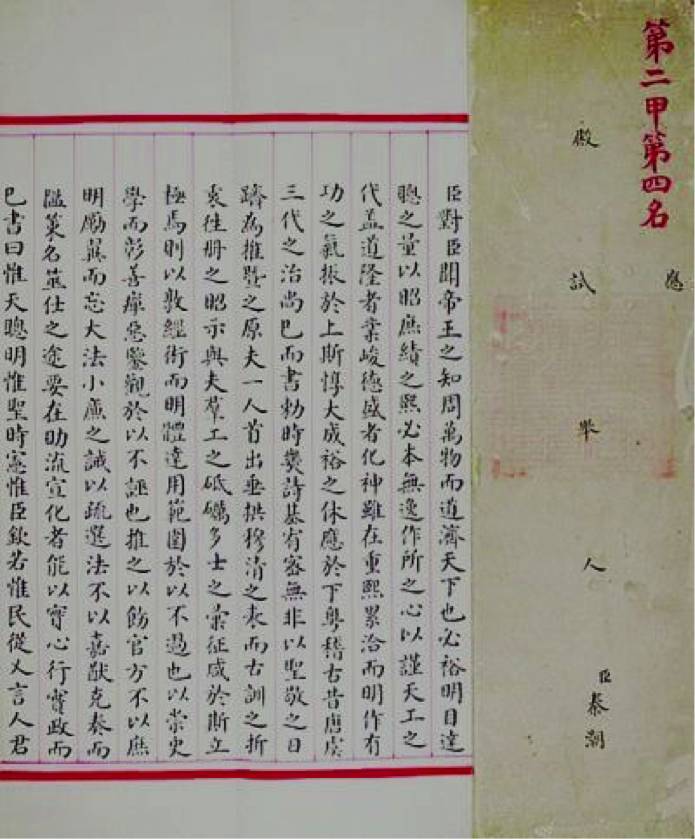 第二甲第四名
應
殿試舉人
臣秦潮
臣對臣聞帝王之知周萬物而道濟天下也必裕明目達
聰之量以昭庶績之熙必本無逸作所之心以謹天工之
代蓋道隆者業峻德盛者化神雖在重熙累洽而明作有
功之氣振於上斯惇大成裕之休應於下粵稽古昔唐虞
三代之治尚已而書勅時幾詩基宥密無非以聖敬之日
躋為推暨之原夫一人首出垂拱穆清之表而古訓之折
衷徃冊之昭示與夫羣工之砥礪多士之彙征咸於斯立
極焉則以敦經術而明體達用範圍於以不過也以崇史
學而彰善癉惡鑒觀於以不誣也推之以飭官方不以庶
明勵翼而忘大法小廉之誡以疏選法不以嘉猷克奏而
濫策名筮仕之途要在助流宣化者能以實心行實政而
已書曰惟天聰明惟聖時憲惟臣欽若惟民從乂言人君